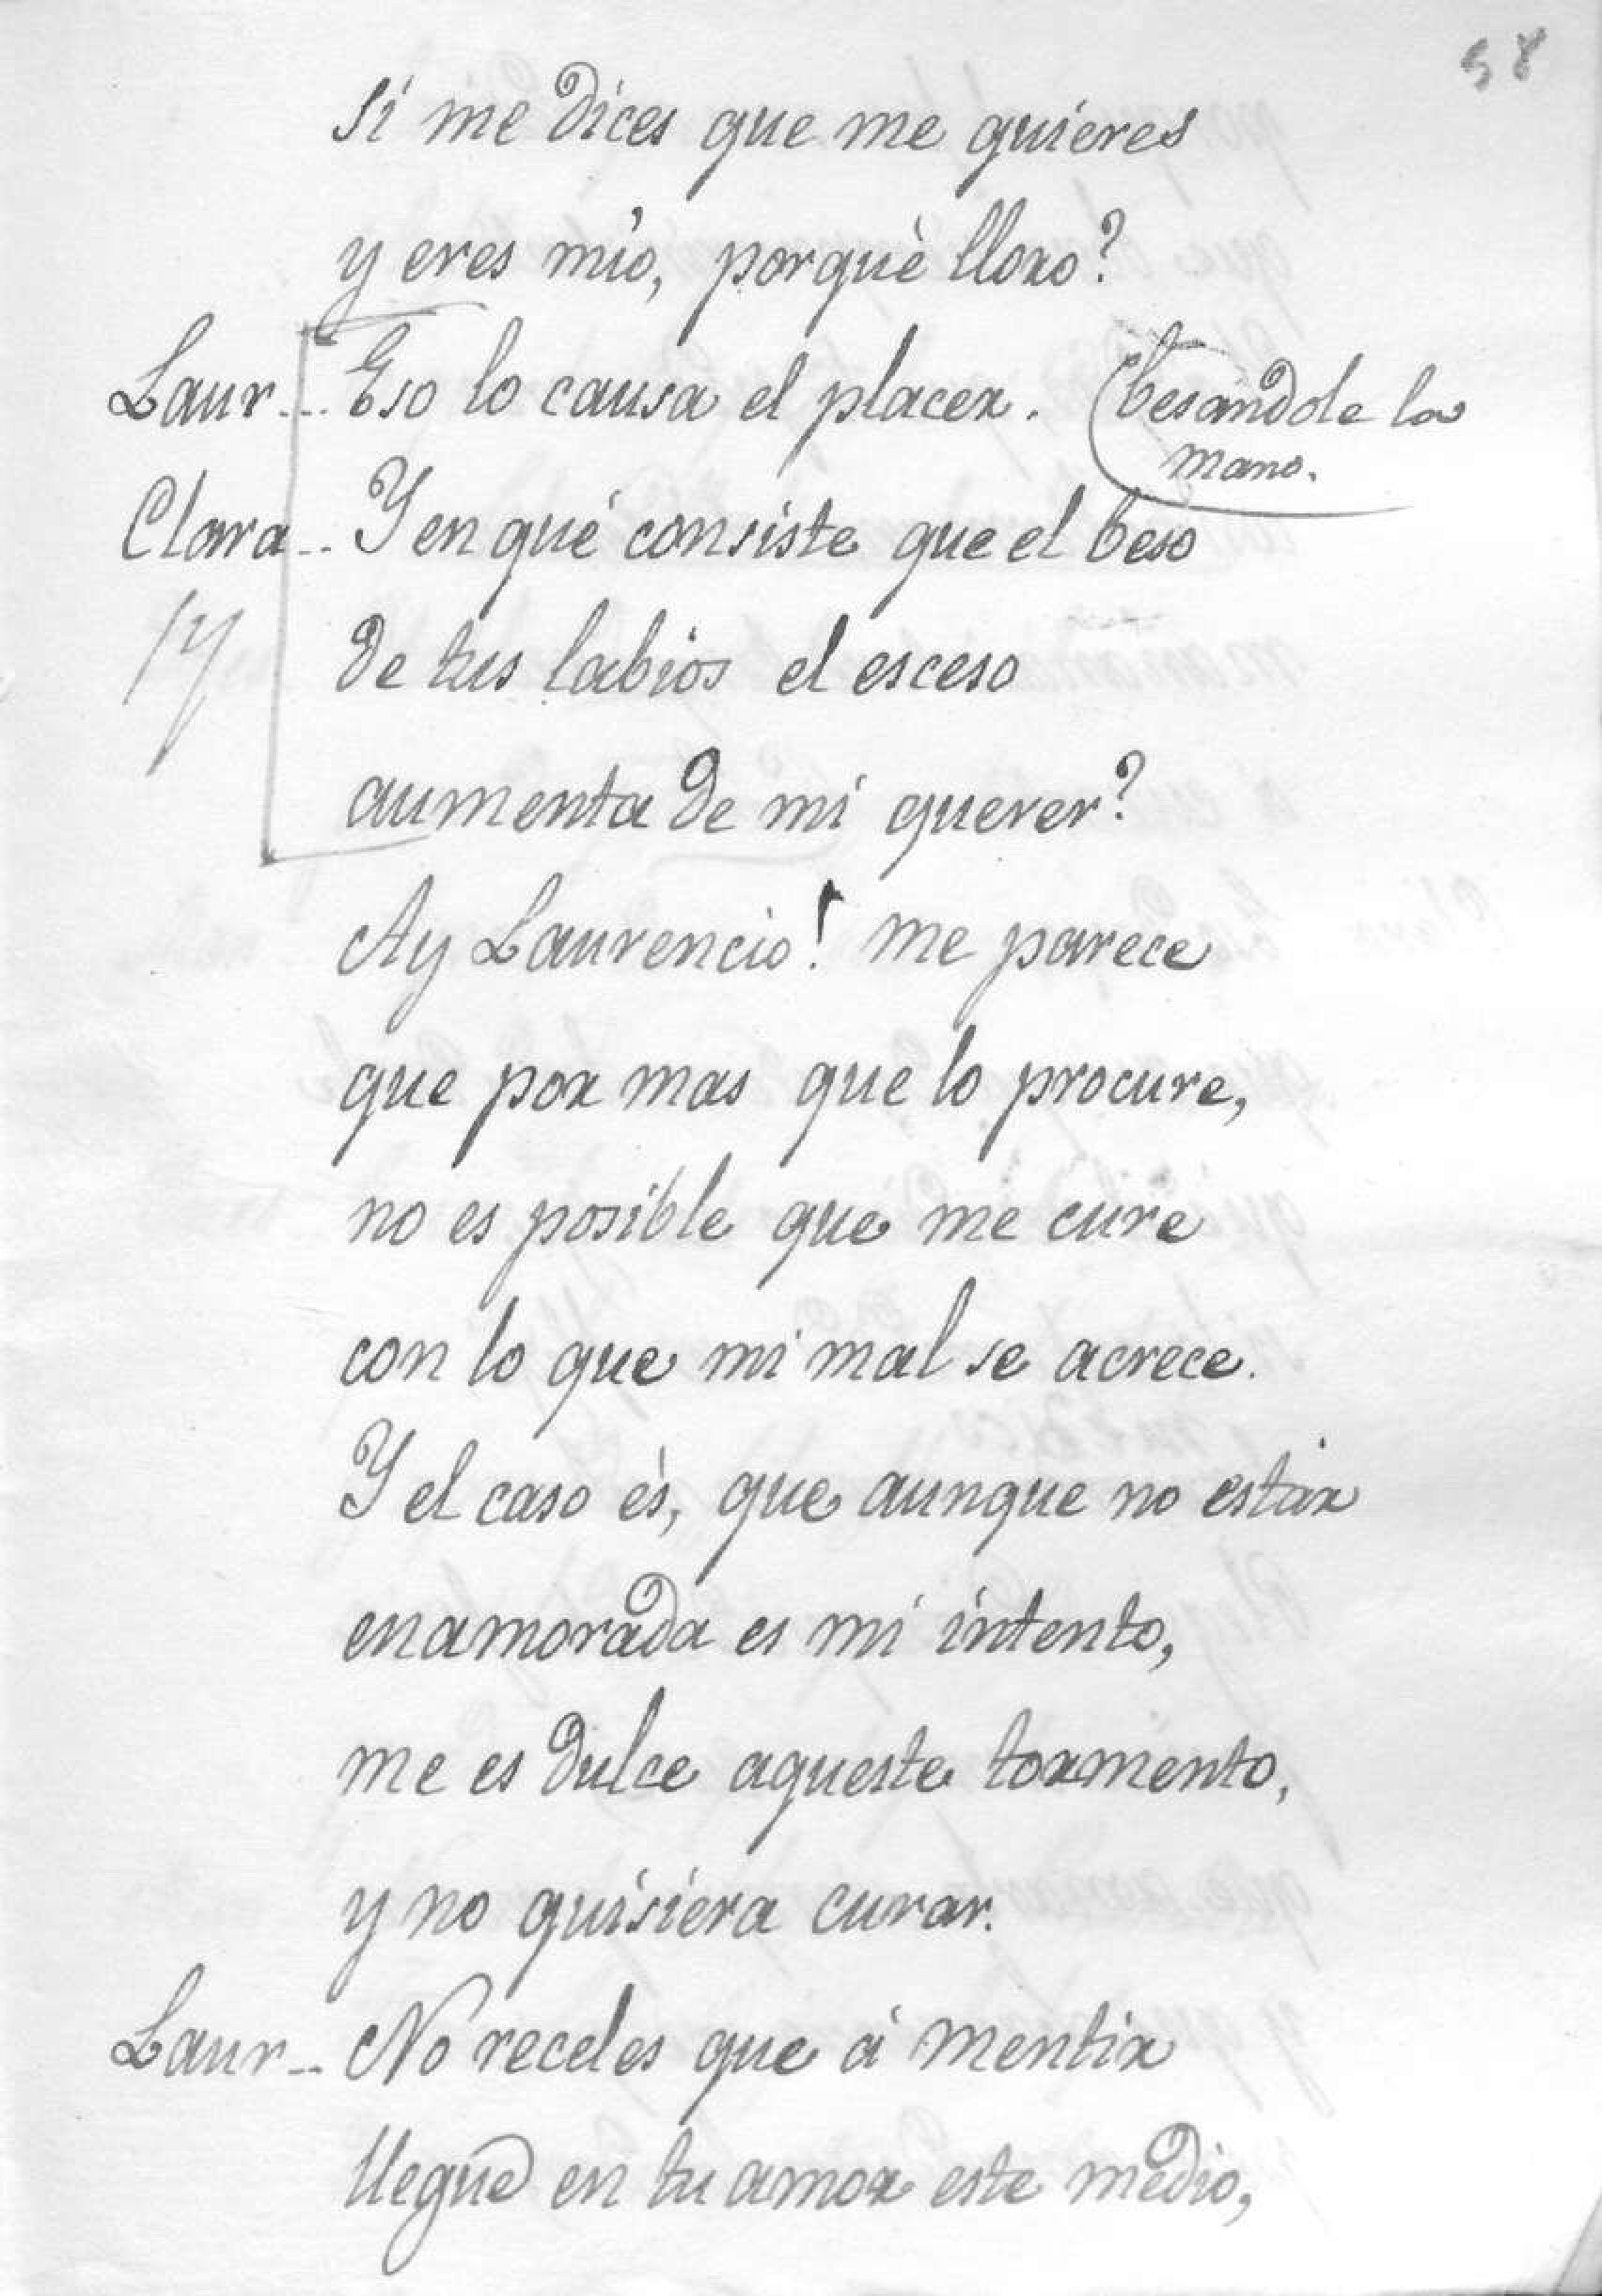 58
si me dices que me quieres
y eres mío, porquè lloro?
Laur... Eso lo causa el placer. (besandole la
mano.
Clara... Y en qué consiste que el beso
de tus labios el esceso
aumenta de mi querer?
Ay Laurencio! me parece
que por mas que lo procure,
no es posible que me cure
con lo que mi mal se acrece.
Y el caso ès, que aunque no estár
enamorada es mi intento,
me es dulce aqueste tormento,
y no quisiera curar.
Laur... No receles que á mentir
llegue en tu amor este medio,